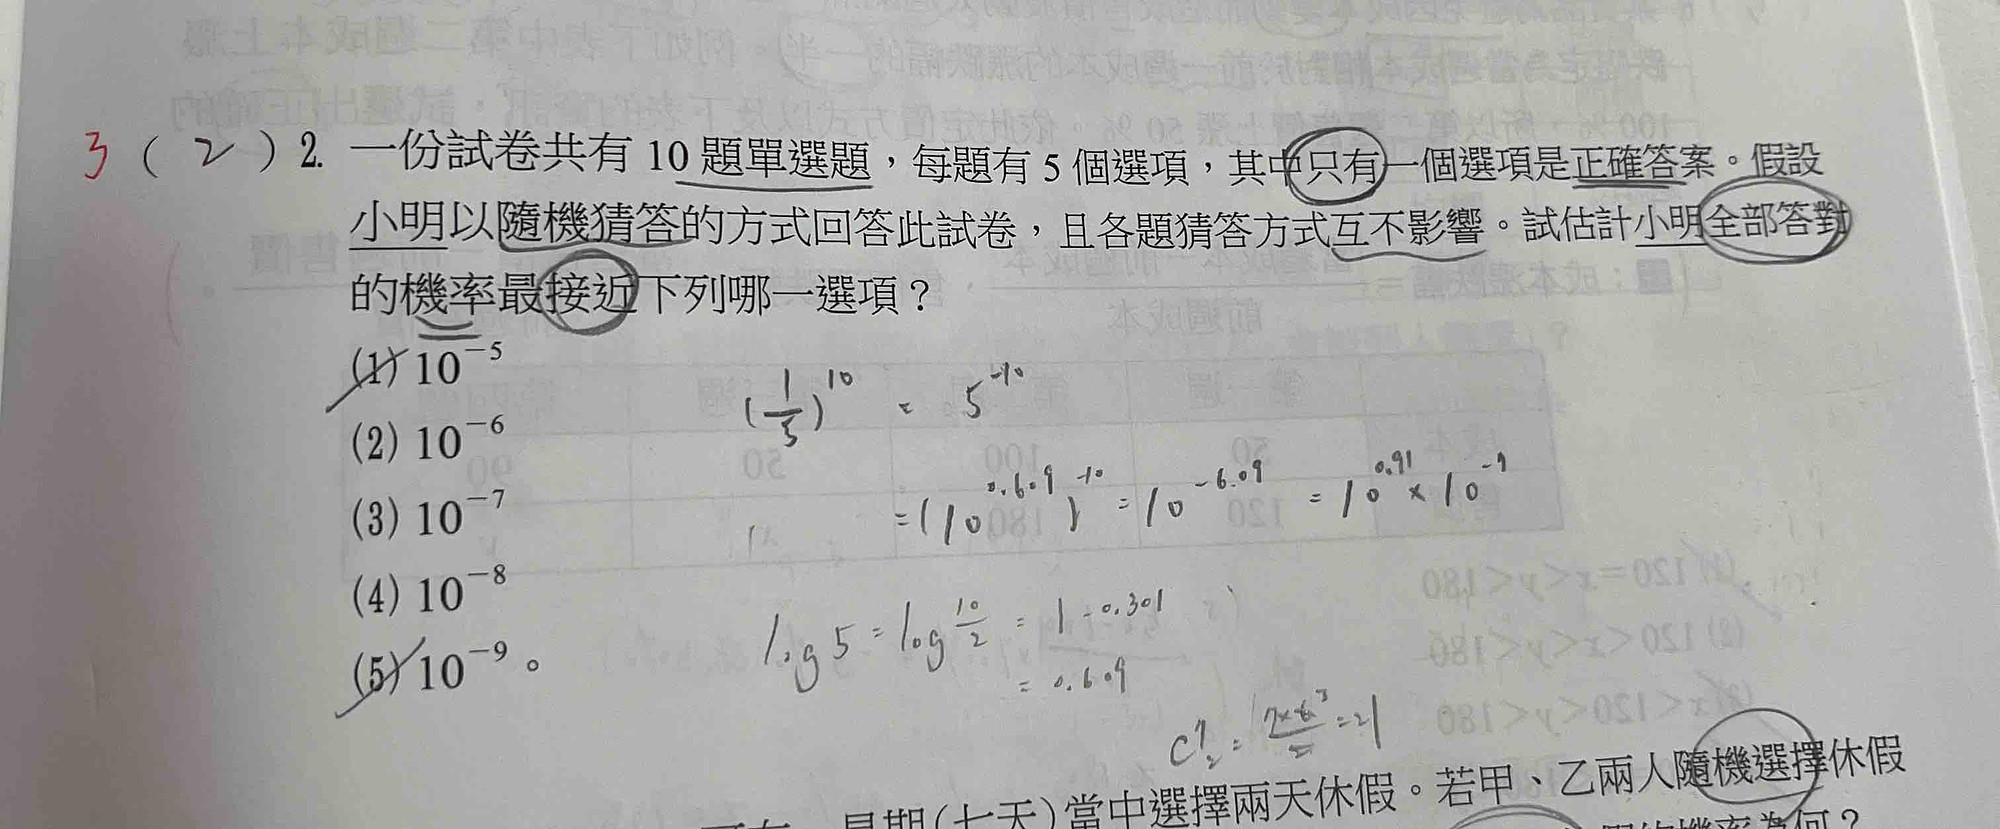 3 ( 2 ) 2. 一份試卷共有 10 題單選題，每題有 5 個選項，其中只有一個選項是正確答案。假設
小明以隨機猜答的方式回答此試卷，且各題猜答方式互不影響。試估計小明全部答對
的機率最接近下列哪一選項？
(1) 10⁻⁵
(2) 10⁻⁶
(3) 10⁻⁷
(4) 10⁻⁸
(5) 10⁻⁹。
(1/5)¹⁰ = 5⁻¹⁰
= (10^0.609)^-10 = 10^-6.09 = 10^0.91 × 10^-7
log 5 = log 10/2 = 1 - 0.301
= 0.609
C⁷₂ = 7×6³/2 = 21
星期(七天)當中選擇兩天休假。若甲、乙兩人隨機選擇休假
機率為何？